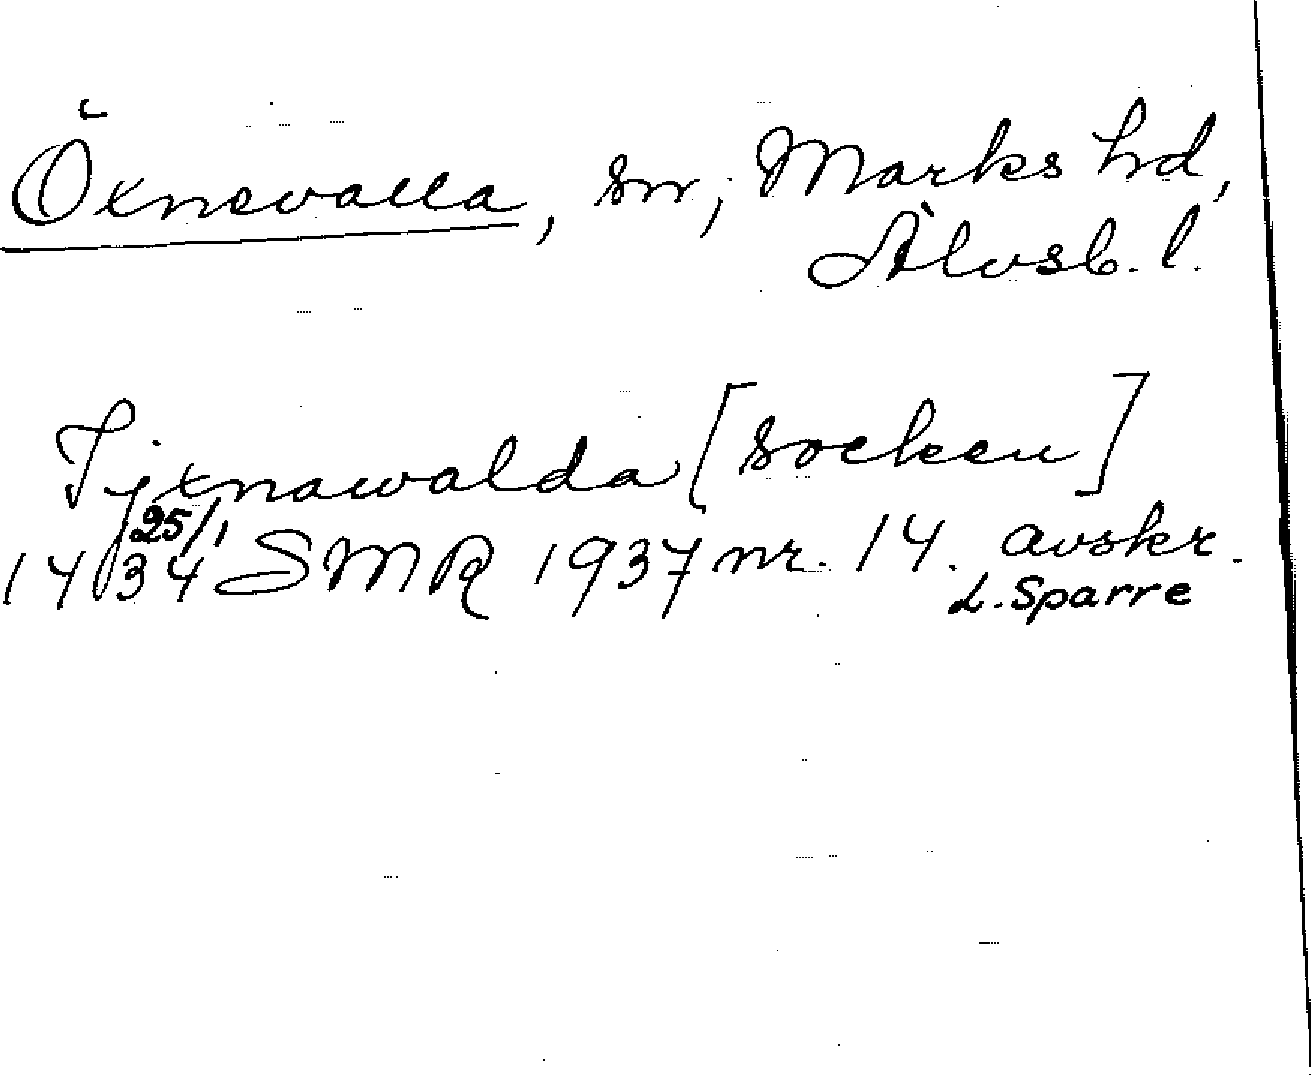 Öxnevalla, sn, Marks hd,
Älvsb. l.
Tjxnawalda [socken]
1434 25/1 SMR 1937 nr. 14. avskr.
L. Sparre